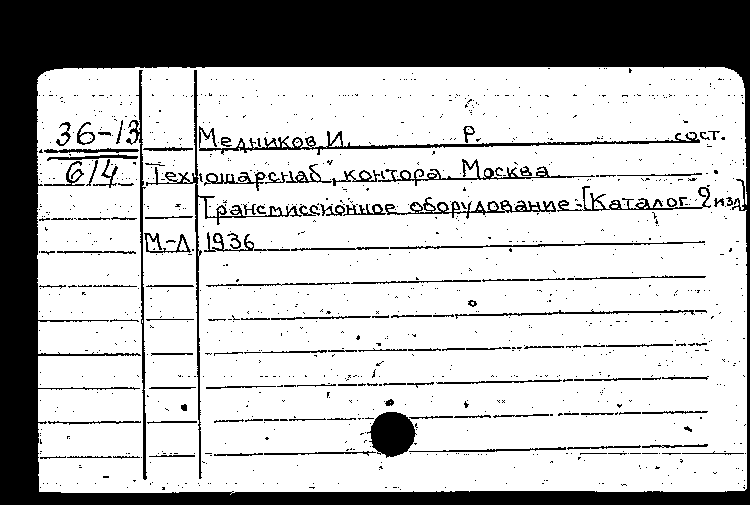 36-13
614
Медников, И. Р. сост.
Техношарснаб", контора. Москва
Трансмиссионное оборудование. [Каталог 2 изд.]
М.-Л. 1936